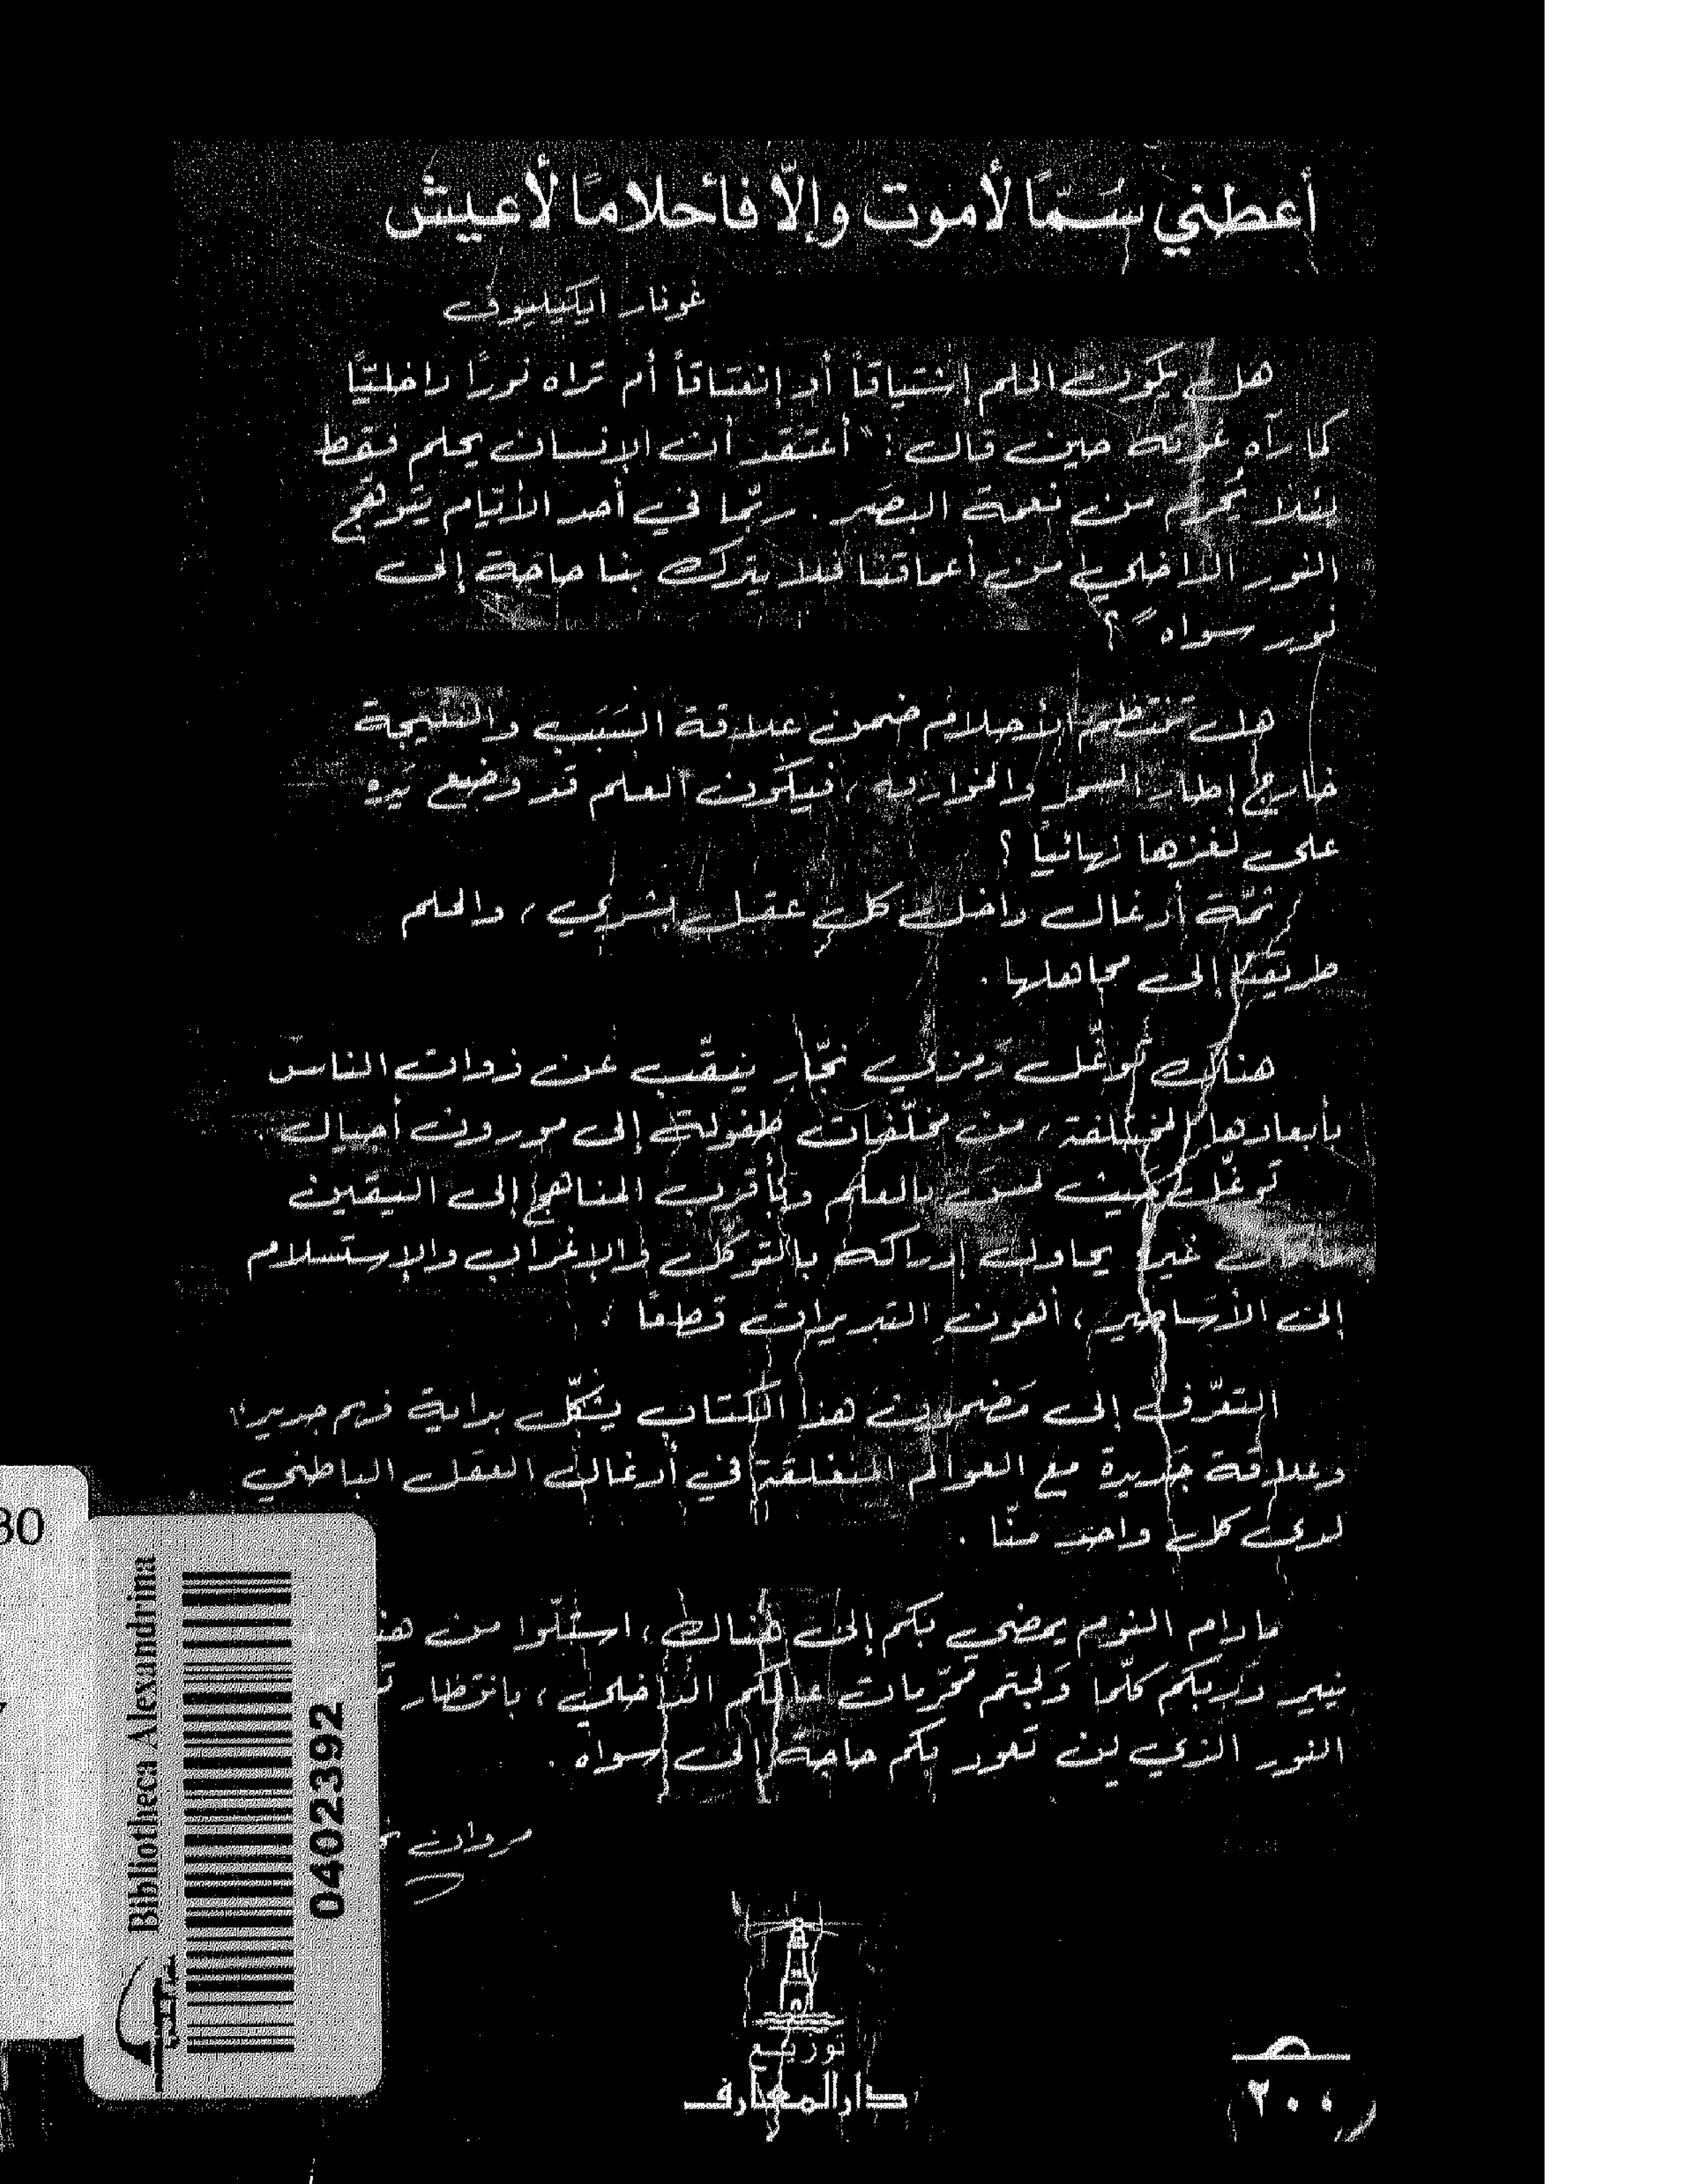 أعطني سُمّاً لأموت وإلّا فأحلاماً لأعيش
غونار ايكيليوف
هل يكون الحلم إشتياقاً أو إنعتاقاً أم تراه نورًا داخليًّا
كما رآه غوته حين قال: "أعتقد أن الإنسان يحلم فقط
لئلا يُحرم من نعمة البصَر. ربّما في أحد الأيّام يتوهّج
النور الداخلي من أعماقنا فلا يترك بنا حاجة إلى
نور سواه"؟
هل تنتظم الأحلام ضمن علاقة السَبَب والنتيجة
خارج إطار السحر والخوارق، فيكون العلم قد وضع يده
على لغزها نهائياً؟
ثمّة أدغال داخل كل عقل بشري، والحلم
طريقنا إلى مجاهلها.
هناك توغّل رمزي نجّار ينقّب عن ذوات الناس
بأبعادها المختلفة، من مخلّفات طفولتة إلى موروث أجيال.
توغّل حيث بالعلم وبأقرب المناهج إلى اليقين
غيره يحاول إدراكه بالتوكّل والإغراب والإستسلام
إلى الأساطير، أهون التبريرات قطعاً.
التعرّف إلى مَضمون هذا الكتاب يشكّل بداية فهم جديد،
وعلاقة جَديدة مع العوالم المنغلقة في أدغال العقل الباطني
لدى كل واحد منّا.
ما دام النوم يمضي بكم إلى هناك، استلّوا من
ينير دربكم كلّما وَلجتم مجرّبات عالمكم الداخلي، بانتظار
النور الذي لن تعود بكم حاجة إلى سواه.
مروان
توزيع
دار المعارف
٢٠٠
Bibliotheca Alexandrina
0402392
30